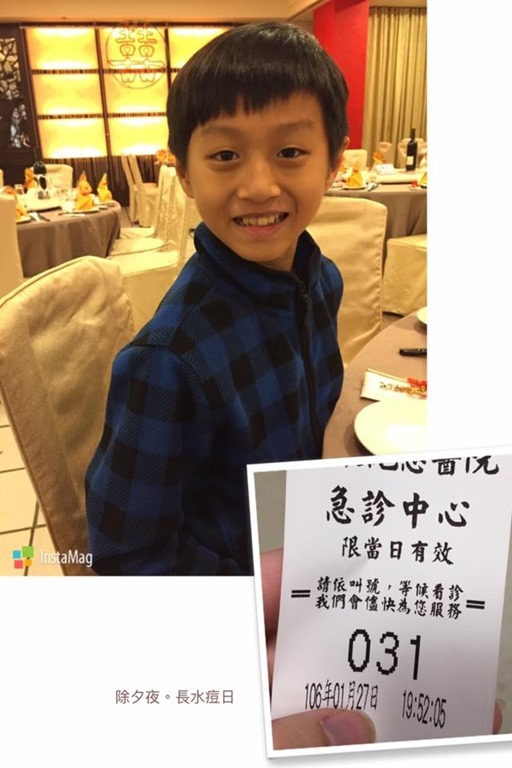 囍
InstaMag
慈醫院
急診中心
限當日有效
請依叫號，等候看診
我們會儘快為您服務
031
106年01月27日 19:52:05
除夕夜。長水痘日